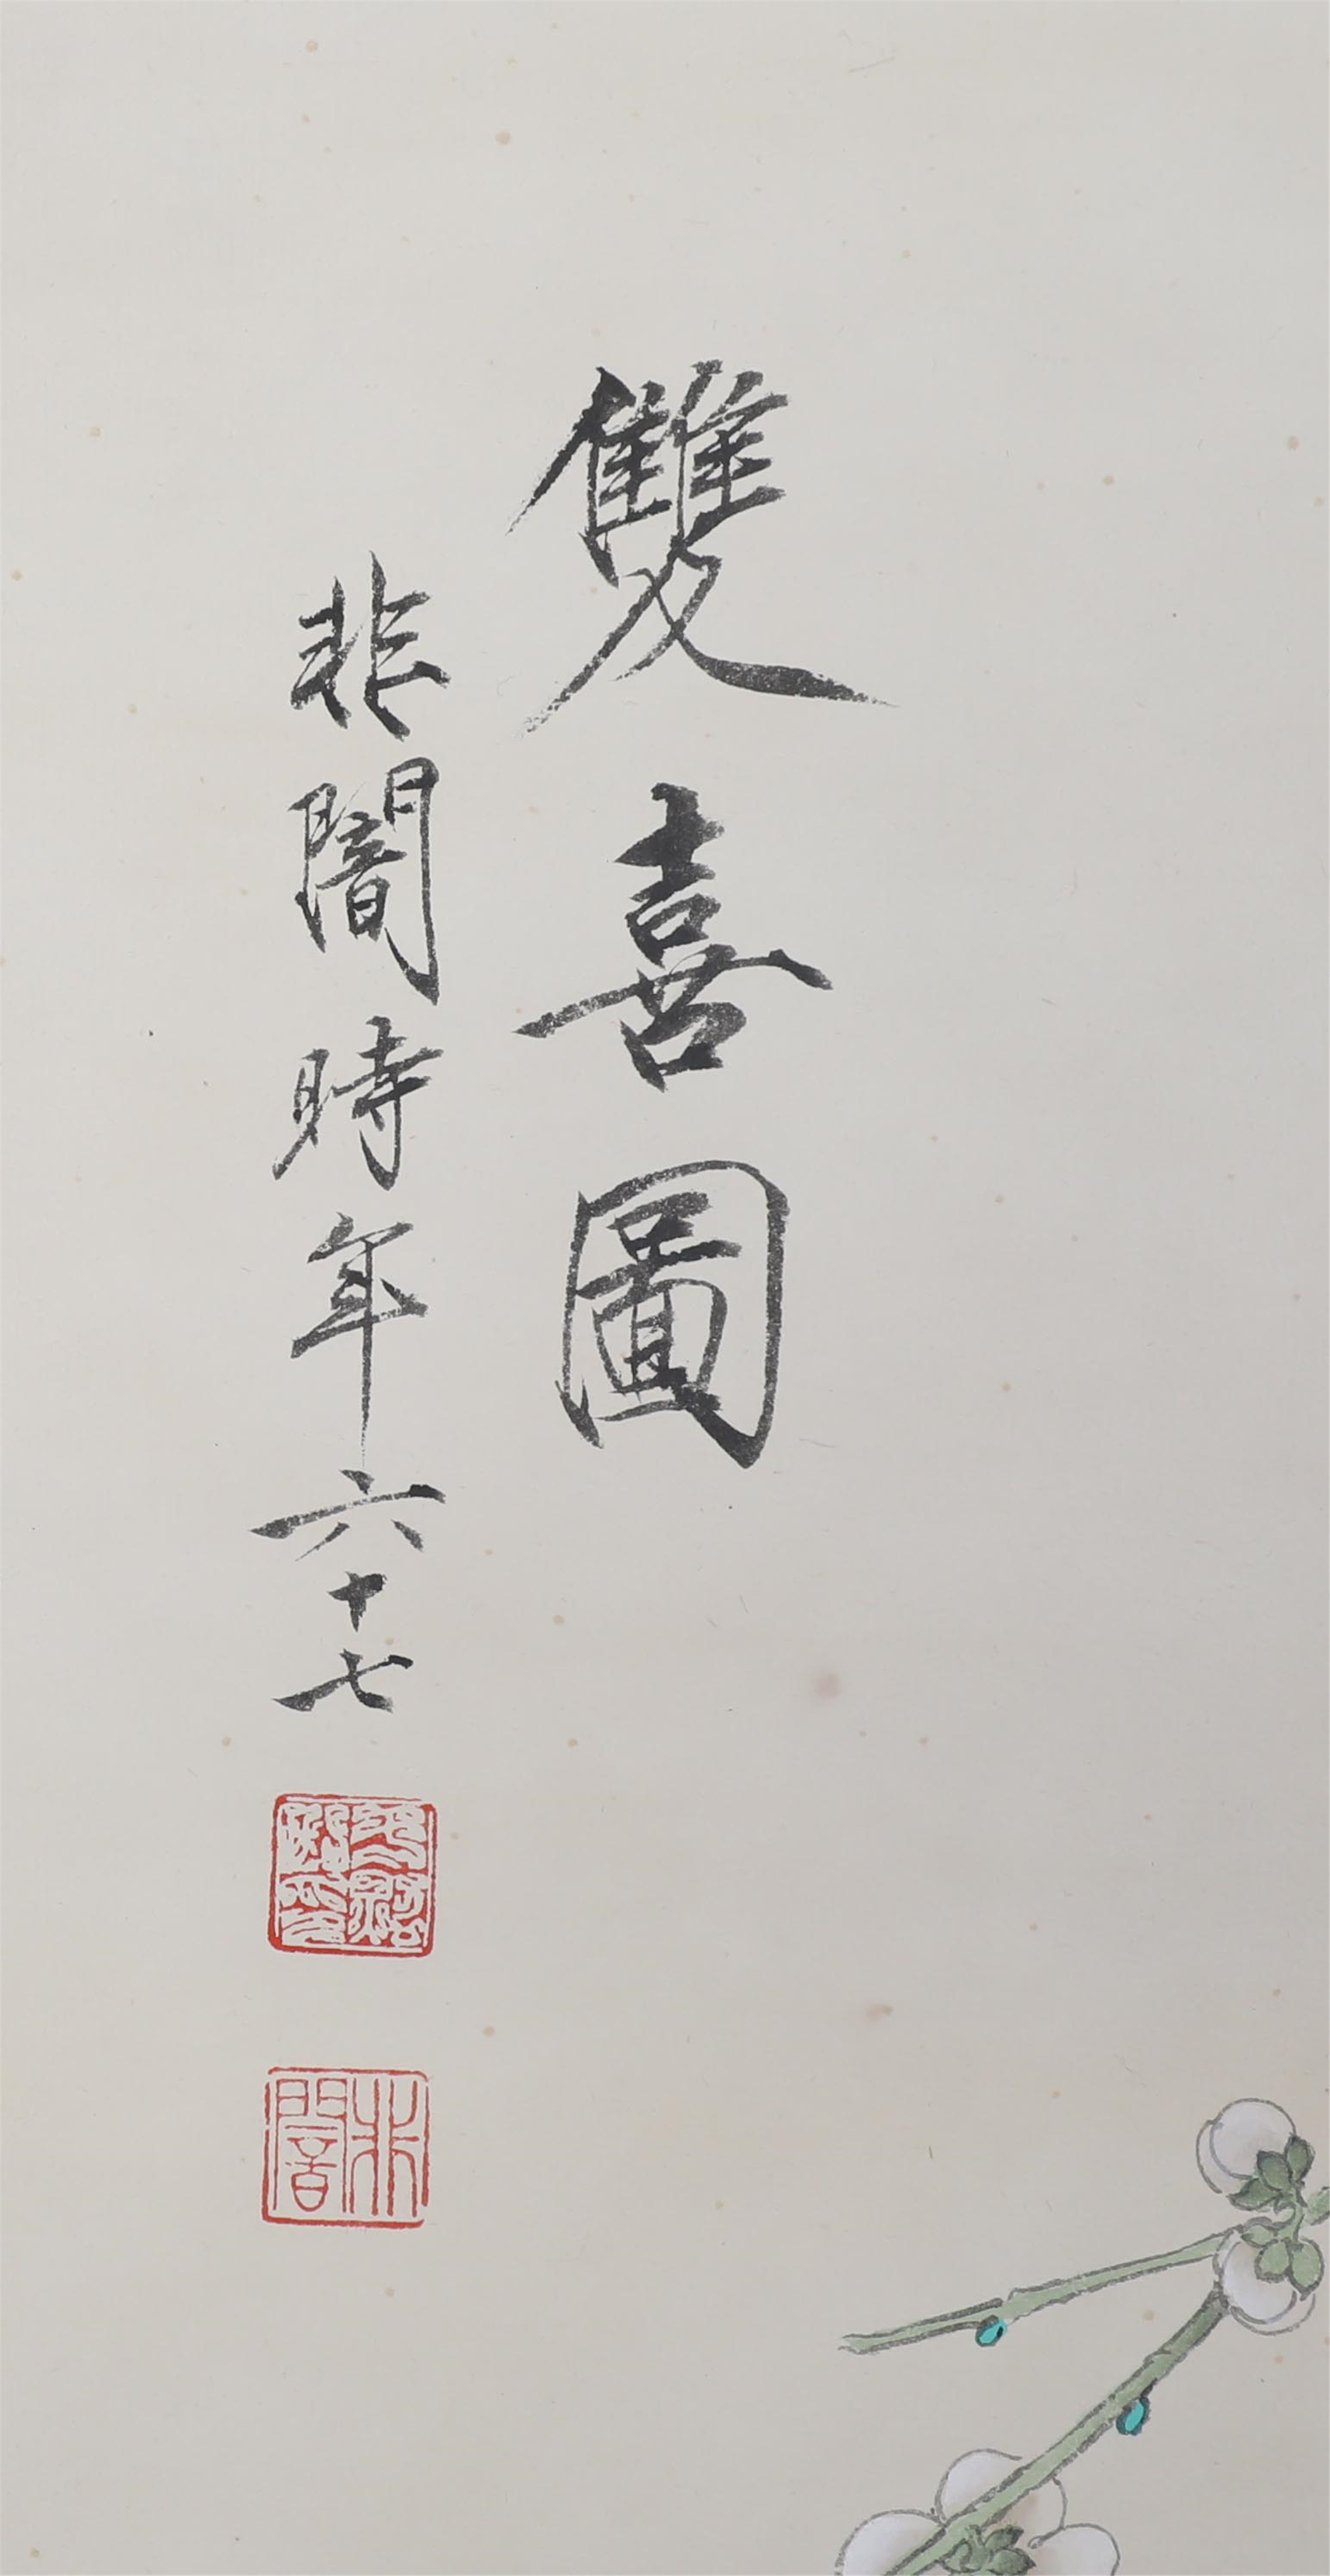 雙喜圖
非闇時年六十七
非闇